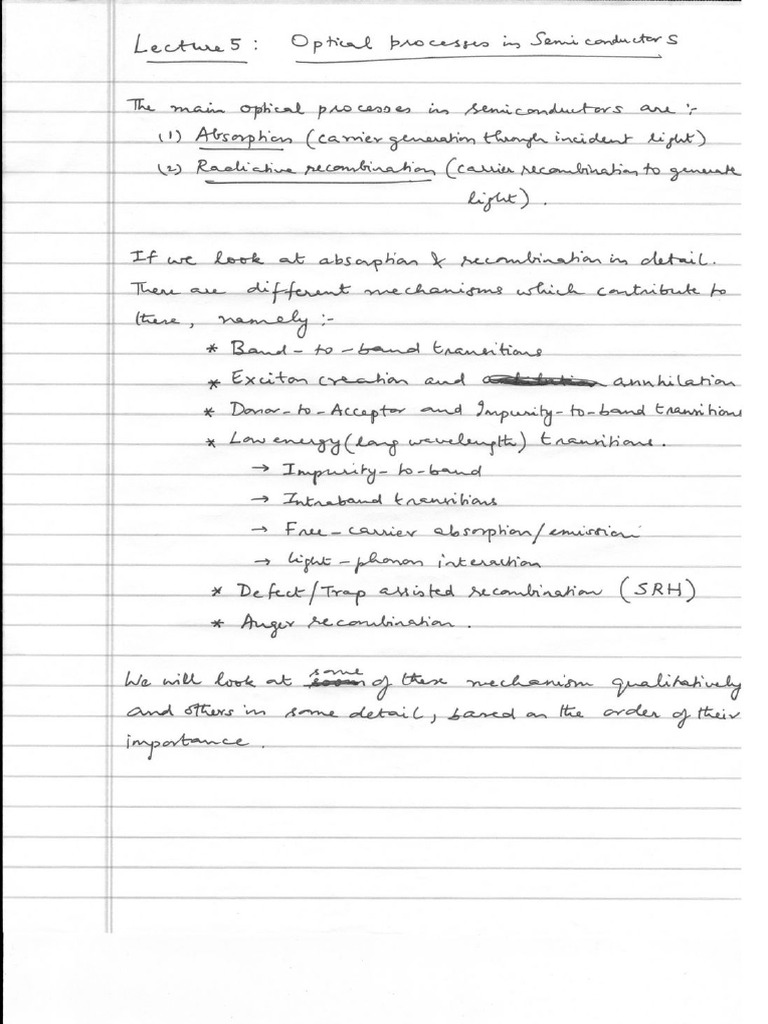 Lecture 5 : Optical processes in Semiconductors
The main optical processes in semiconductors are :-
(1) Absorption (carrier generation through incident light)
(2) Radiative recombination (carrier recombination to generate
light) .
If we look at absorption & recombination in detail.
There are different mechanisms which contribute to
these, namely :-
* Band-to-band transitions
* Exciton creation and annhilation
* Donor-to-Acceptor and Impurity-to-band transitions
* Low energy (long wavelength) transitions.
→ Impurity-to-band
→ Intraband transitions
→ Free-carrier absorption/emission
→ light-phonon interaction
* Defect/Trap assisted recombination (SRH)
* Auger recombination .
We will look at some of these mechanism qualitatively
and others in some detail, based on the order of their
importance .